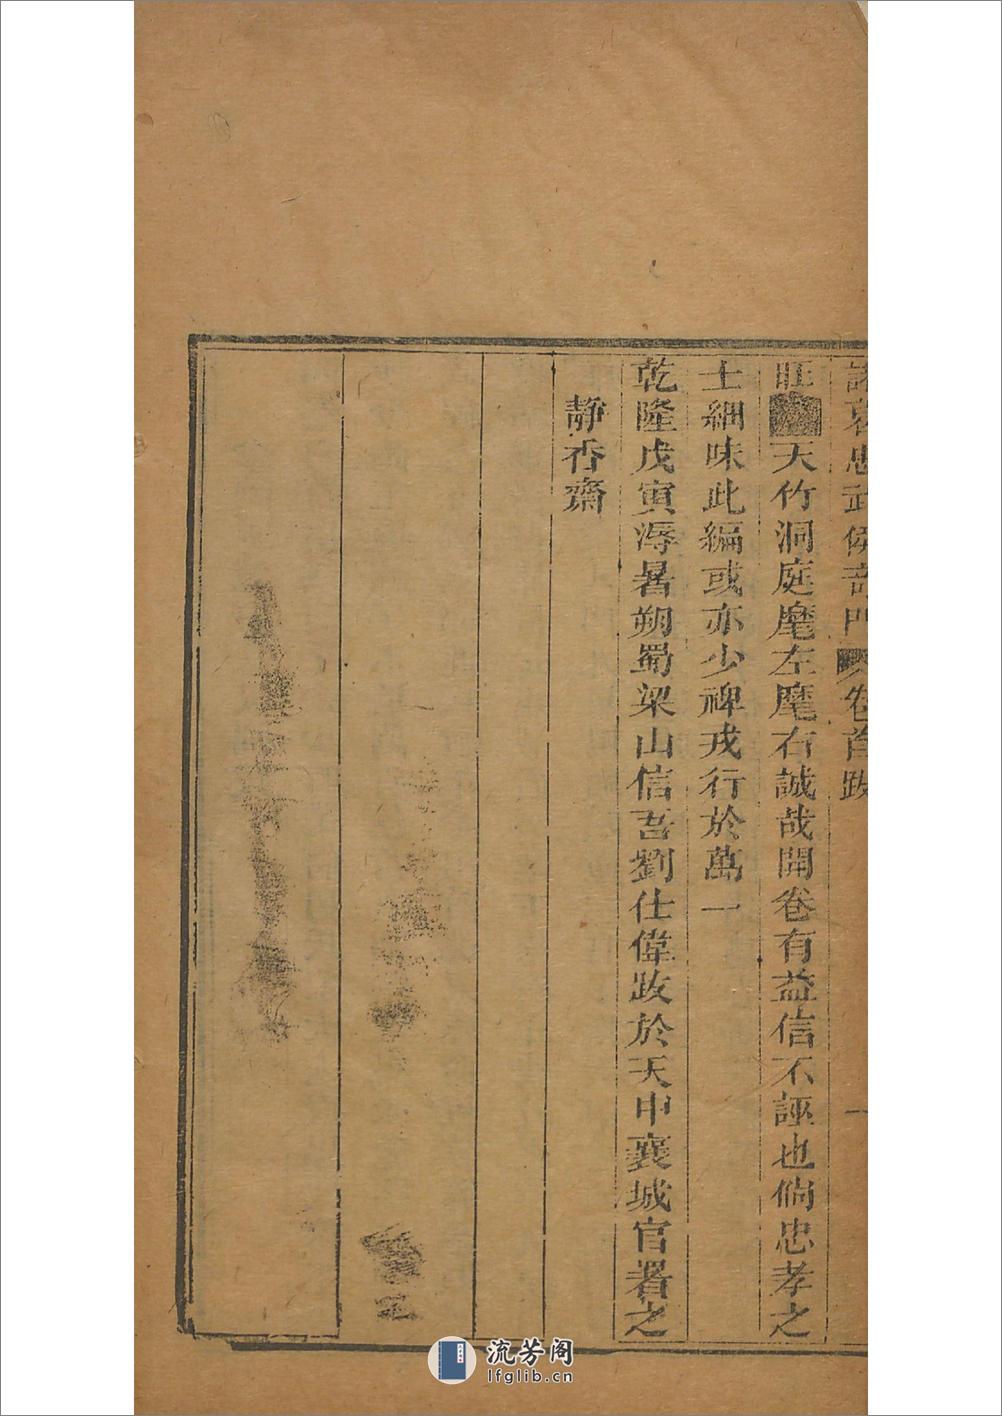 諸葛忠武侯奇門 卷首跋 一
旺 天竹洞庭麾左麾右誠哉開卷有益信不誣也倘忠孝之
士細味此編或亦少裨戎行於萬一
乾隆戊寅溽暑朔蜀梁山信吾劉仕偉跋於天中襄城官署之
靜香齋
流芳阁
lfglib.cn